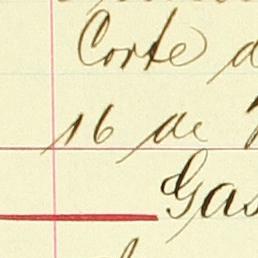 Corte
16 de
Gas